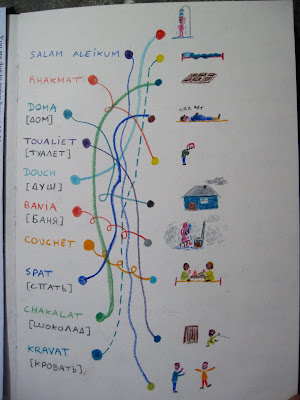 SALAM ALEIKUM
RHAKMAT
DOMA
[ДОМ]
TOUALIET
[ТУАЛЕТ]
DOUCH
[ДУШ]
BANIA
[БАНЯ]
COUCHET
SPAT
[СПАТЬ]
CHAKALAT
[ШОКОЛАД]
KRAVAT
[КРОВАТЬ]